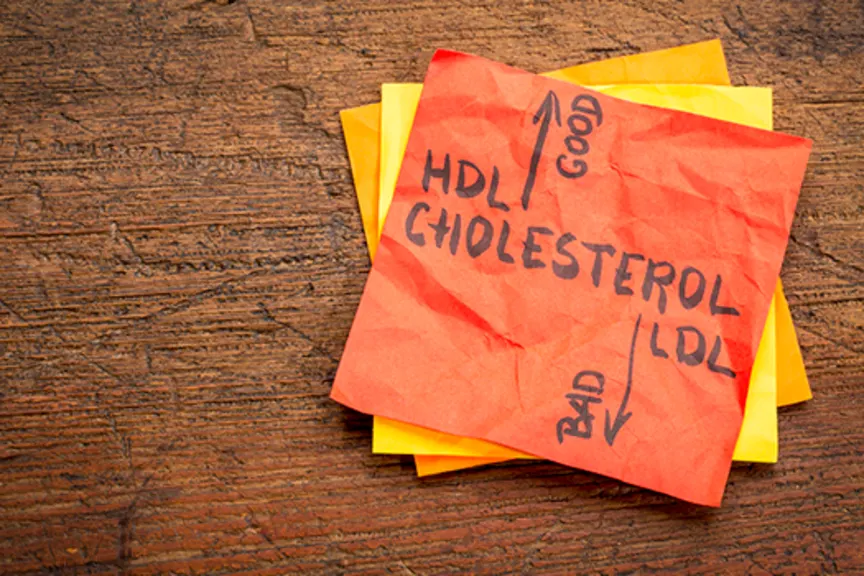 GOOD
HDL
CHOLESTEROL
LDL
BAD